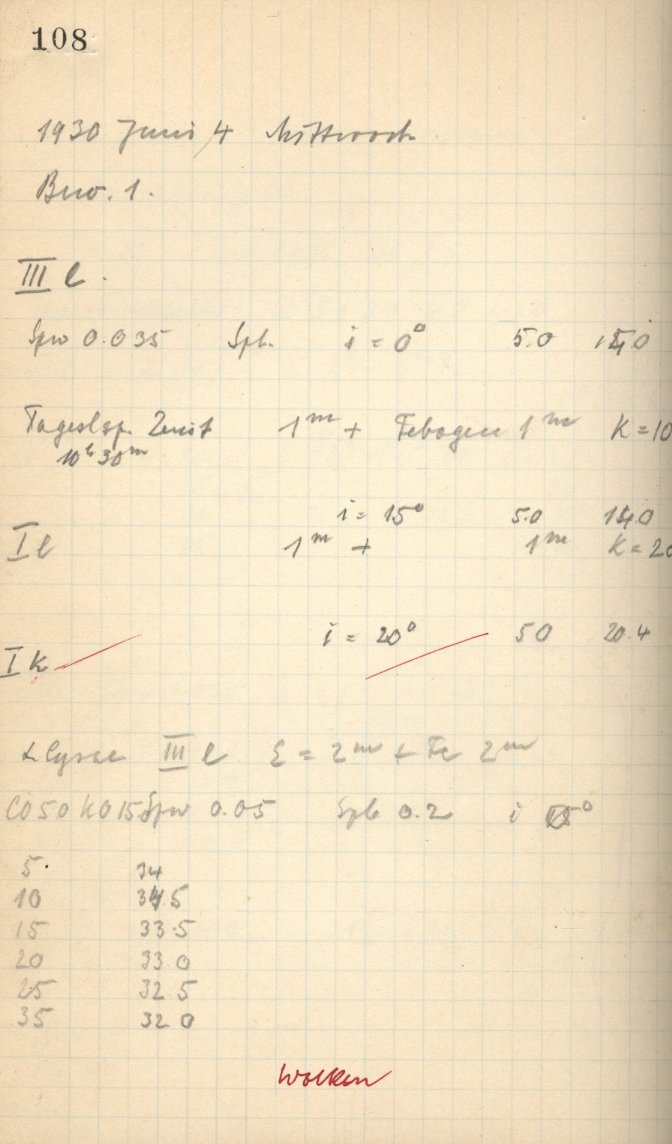 108
1930 Juni 4 Mittwoch
Beob. 1.
III l.
Spw 0.035 Spl. i = 0° 5.0
Tagesl. Zenit 1m + Febogen 1m K = 10
10h 30m
i = 15° 5.0 14.0
I l 1m + 1m K = 20
i = 20° 50 20.4
I k
α Cygni III l E = 2m + Fe 2m
C0 50 K0 15 Spw 0.05 Spl 0.2 i
5. 34
10 34 5
15 33.5
20 33 0
25 32 5
35 32 0
Wolken